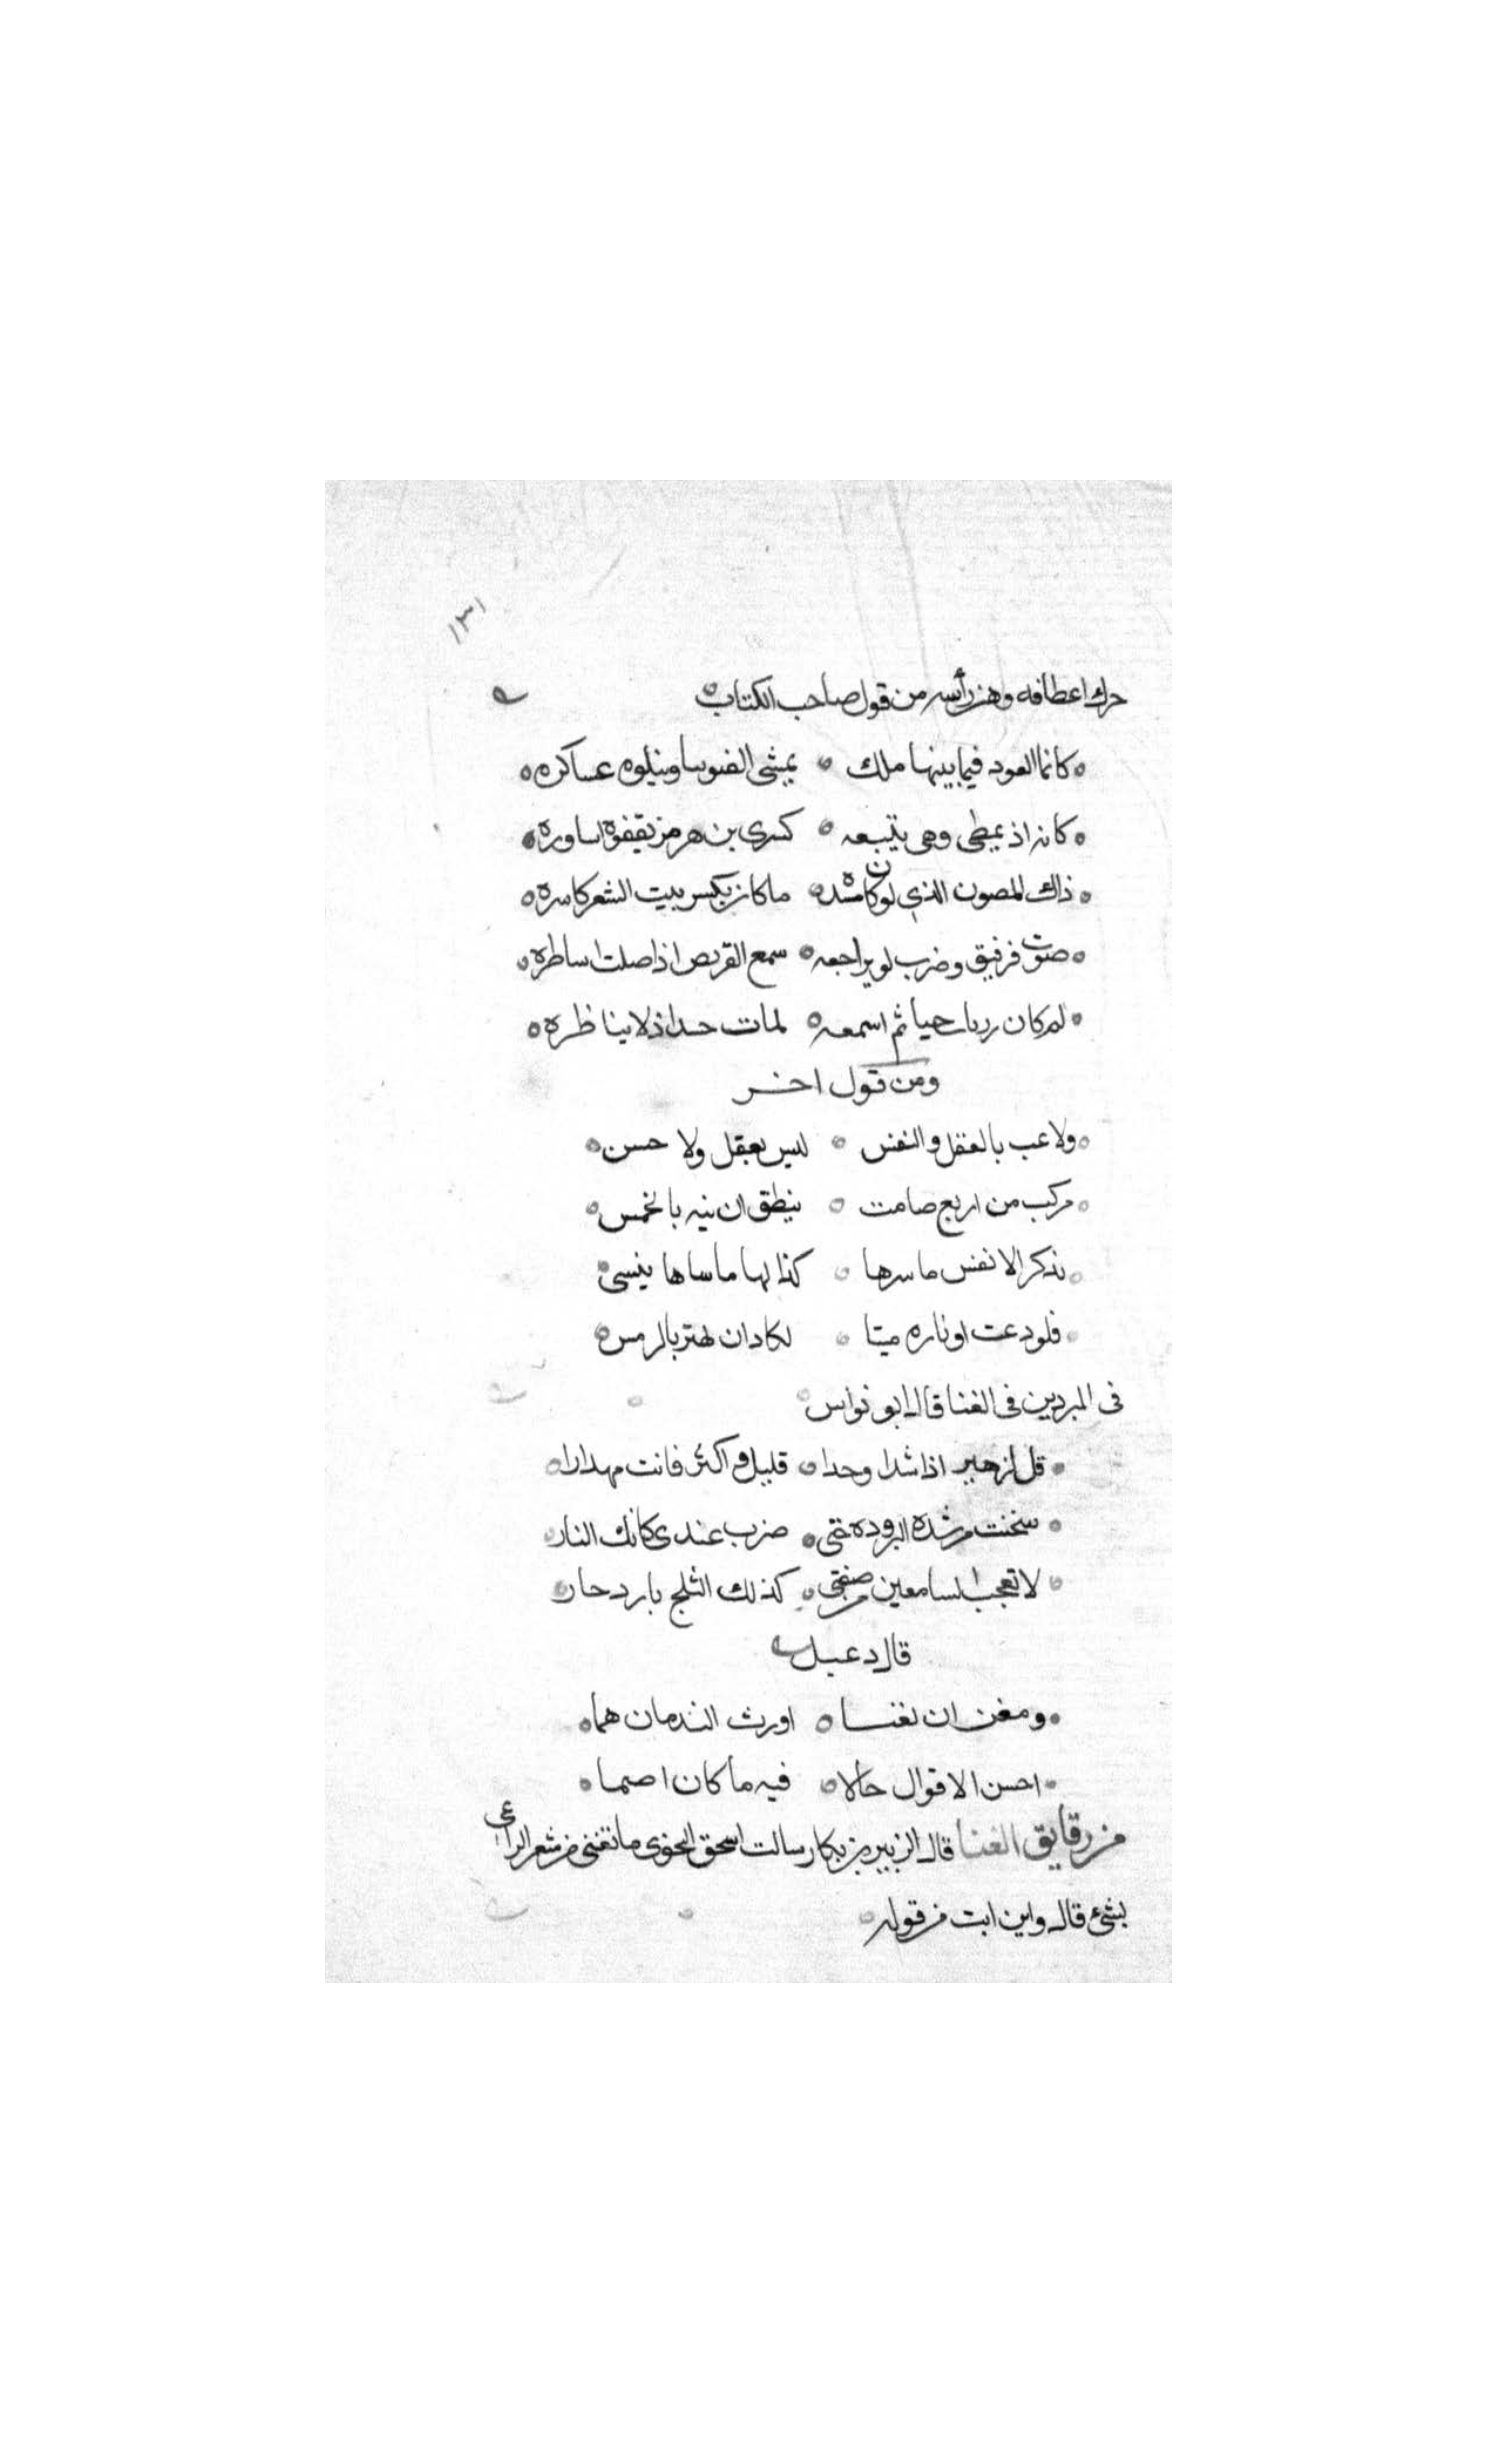 ١٣١
حرك اعطافه وهز رأسه من قول صاحب الكتاب
كانما العود فيما بينها ملك ه يمشي الهنوسا ويتلوه عساكره
كانه اذ يمطى وهى يتبعه ه كسرى بن هرمز يقفوه اساوره
ذاك المصون الذي لو كان مثله ه ما كان يكسر بيت الشعر كاسره
صوت وضرب لو يراجعه ه سمع القريض اذا صلت اساطره
لو كان حيا ثم اسمعه ه لمات اذ لا يناظره
ومن قول اخر
ولاعب بالعقل والنفس ه ليس بعقل ولا حسن
مركب من اربع صامت ه ينطق ان نيه بالخمس
يذكر الانفس ما سرها ه كذا لها ما ساها ينسى
فلو دعت اوتاره ميتا ه لكاد ان يهتز بالرمس
فى المبردين فى الغنا قال ابو نواس
قل لزهير اذا شدا وحدا ه قليل واكثر فانت مهدار
سخنت من شدة البروده حتى ه ضرب عندى كانك النار
لا تعجب السامعين من صفتى ه كذلك الثلج بارد حار
قال دعبل
ومغن ان تغنا ه اورث الندمان هما
احسن الاقوال حالا ه فيه ما كان اصما
من رقايق الغنا قال الزبير بن بكار سالت اسحق ما تغنى من شعر الراعى
بشئ قال واين انت من قوله